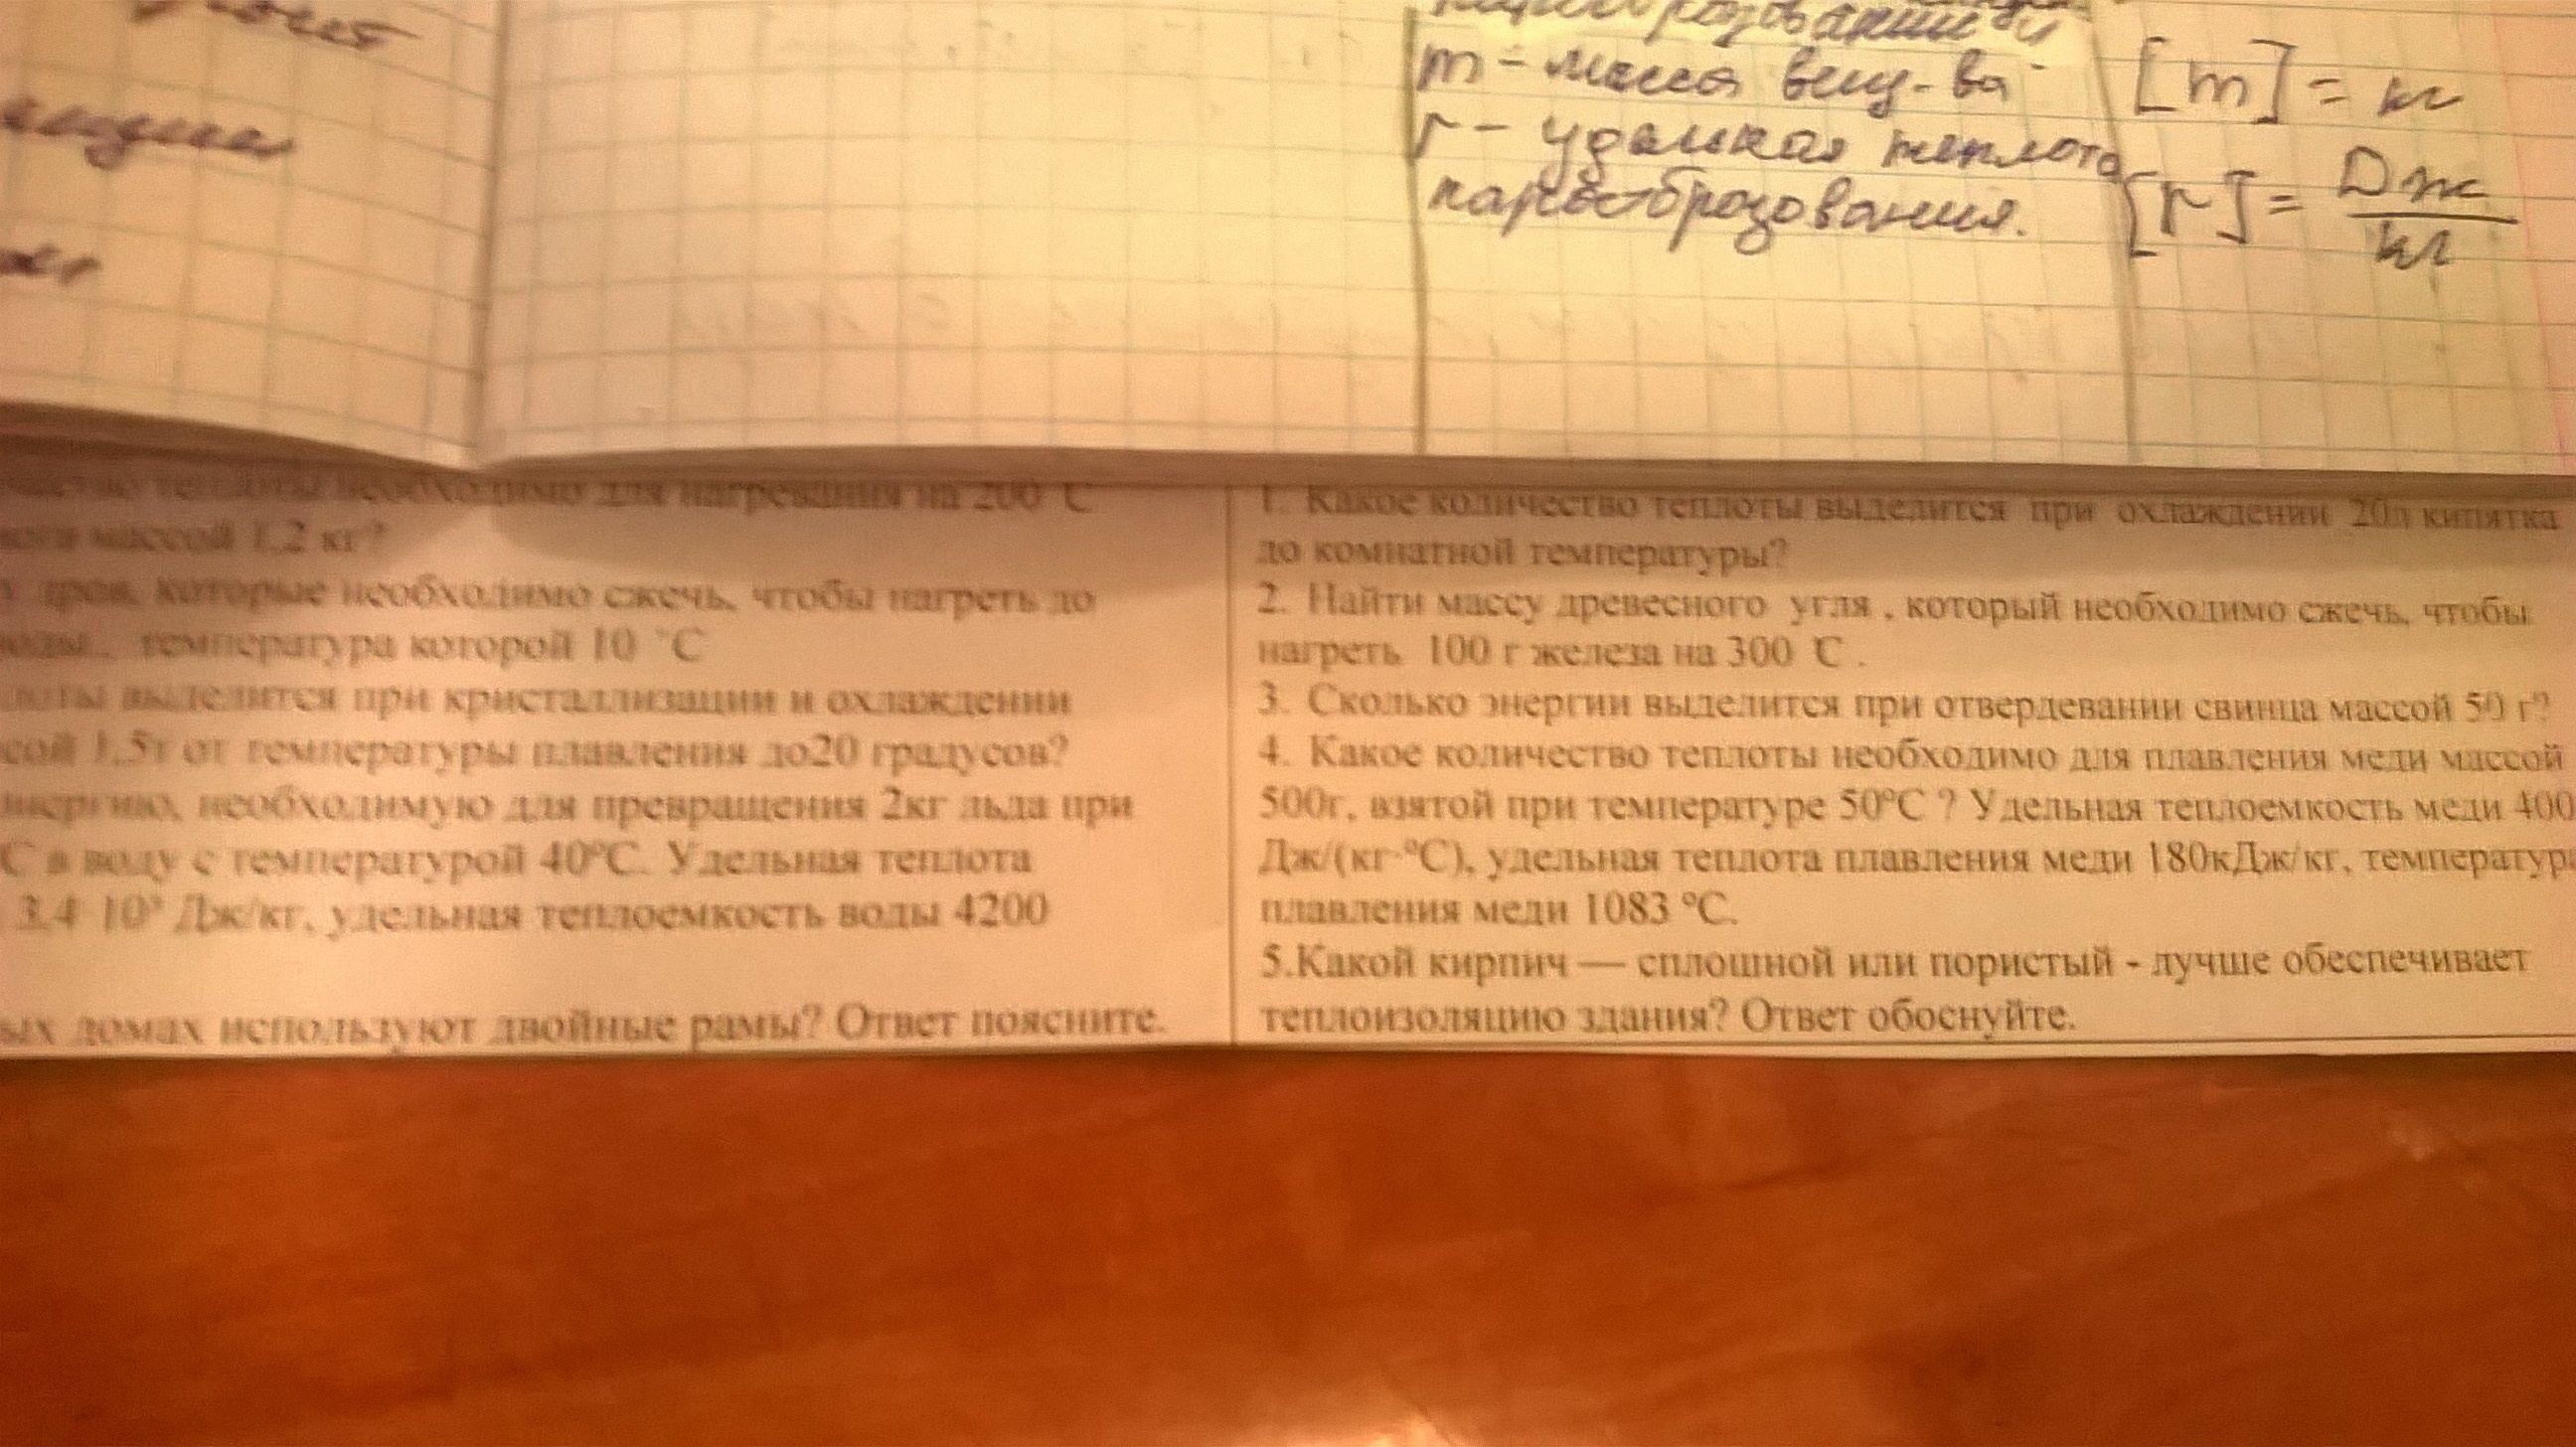 m - масса вещ-ва
[m] = кг
r - удельная теплота
парообразования.
[r] = Дж
кг
теплоты необходимо для нагревания на 200 °С
массой 1,2 кг?
дров, которые необходимо сжечь, чтобы нагреть до
температура которой 10 °С
выделится при кристаллизации и охлаждении
1,5т от температуры плавления до20 градусов?
необходимую для превращения 2кг льда при
С в воду с температурой 40°С. Удельная теплота
3,4 10⁵ Дж/кг, удельная теплоемкость воды 4200
домах используют двойные рамы? Ответ поясните.
1. Какое количество теплоты выделится при охлаждении 20л кипятка
до комнатной температуры?
2. Найти массу древесного угля , который необходимо сжечь, чтобы
нагреть 100 г железа на 300 °С .
3. Сколько энергии выделится при отвердевании свинца массой 50 г?
4. Какое количество теплоты необходимо для плавления меди массой
500г, взятой при температуре 50°С ? Удельная теплоемкость меди 400
Дж/(кг·°С), удельная теплота плавления меди 180кДж/кг, температура
плавления меди 1083 °С.
5.Какой кирпич — сплошной или пористый - лучше обеспечивает
теплоизоляцию здания? Ответ обоснуйте.